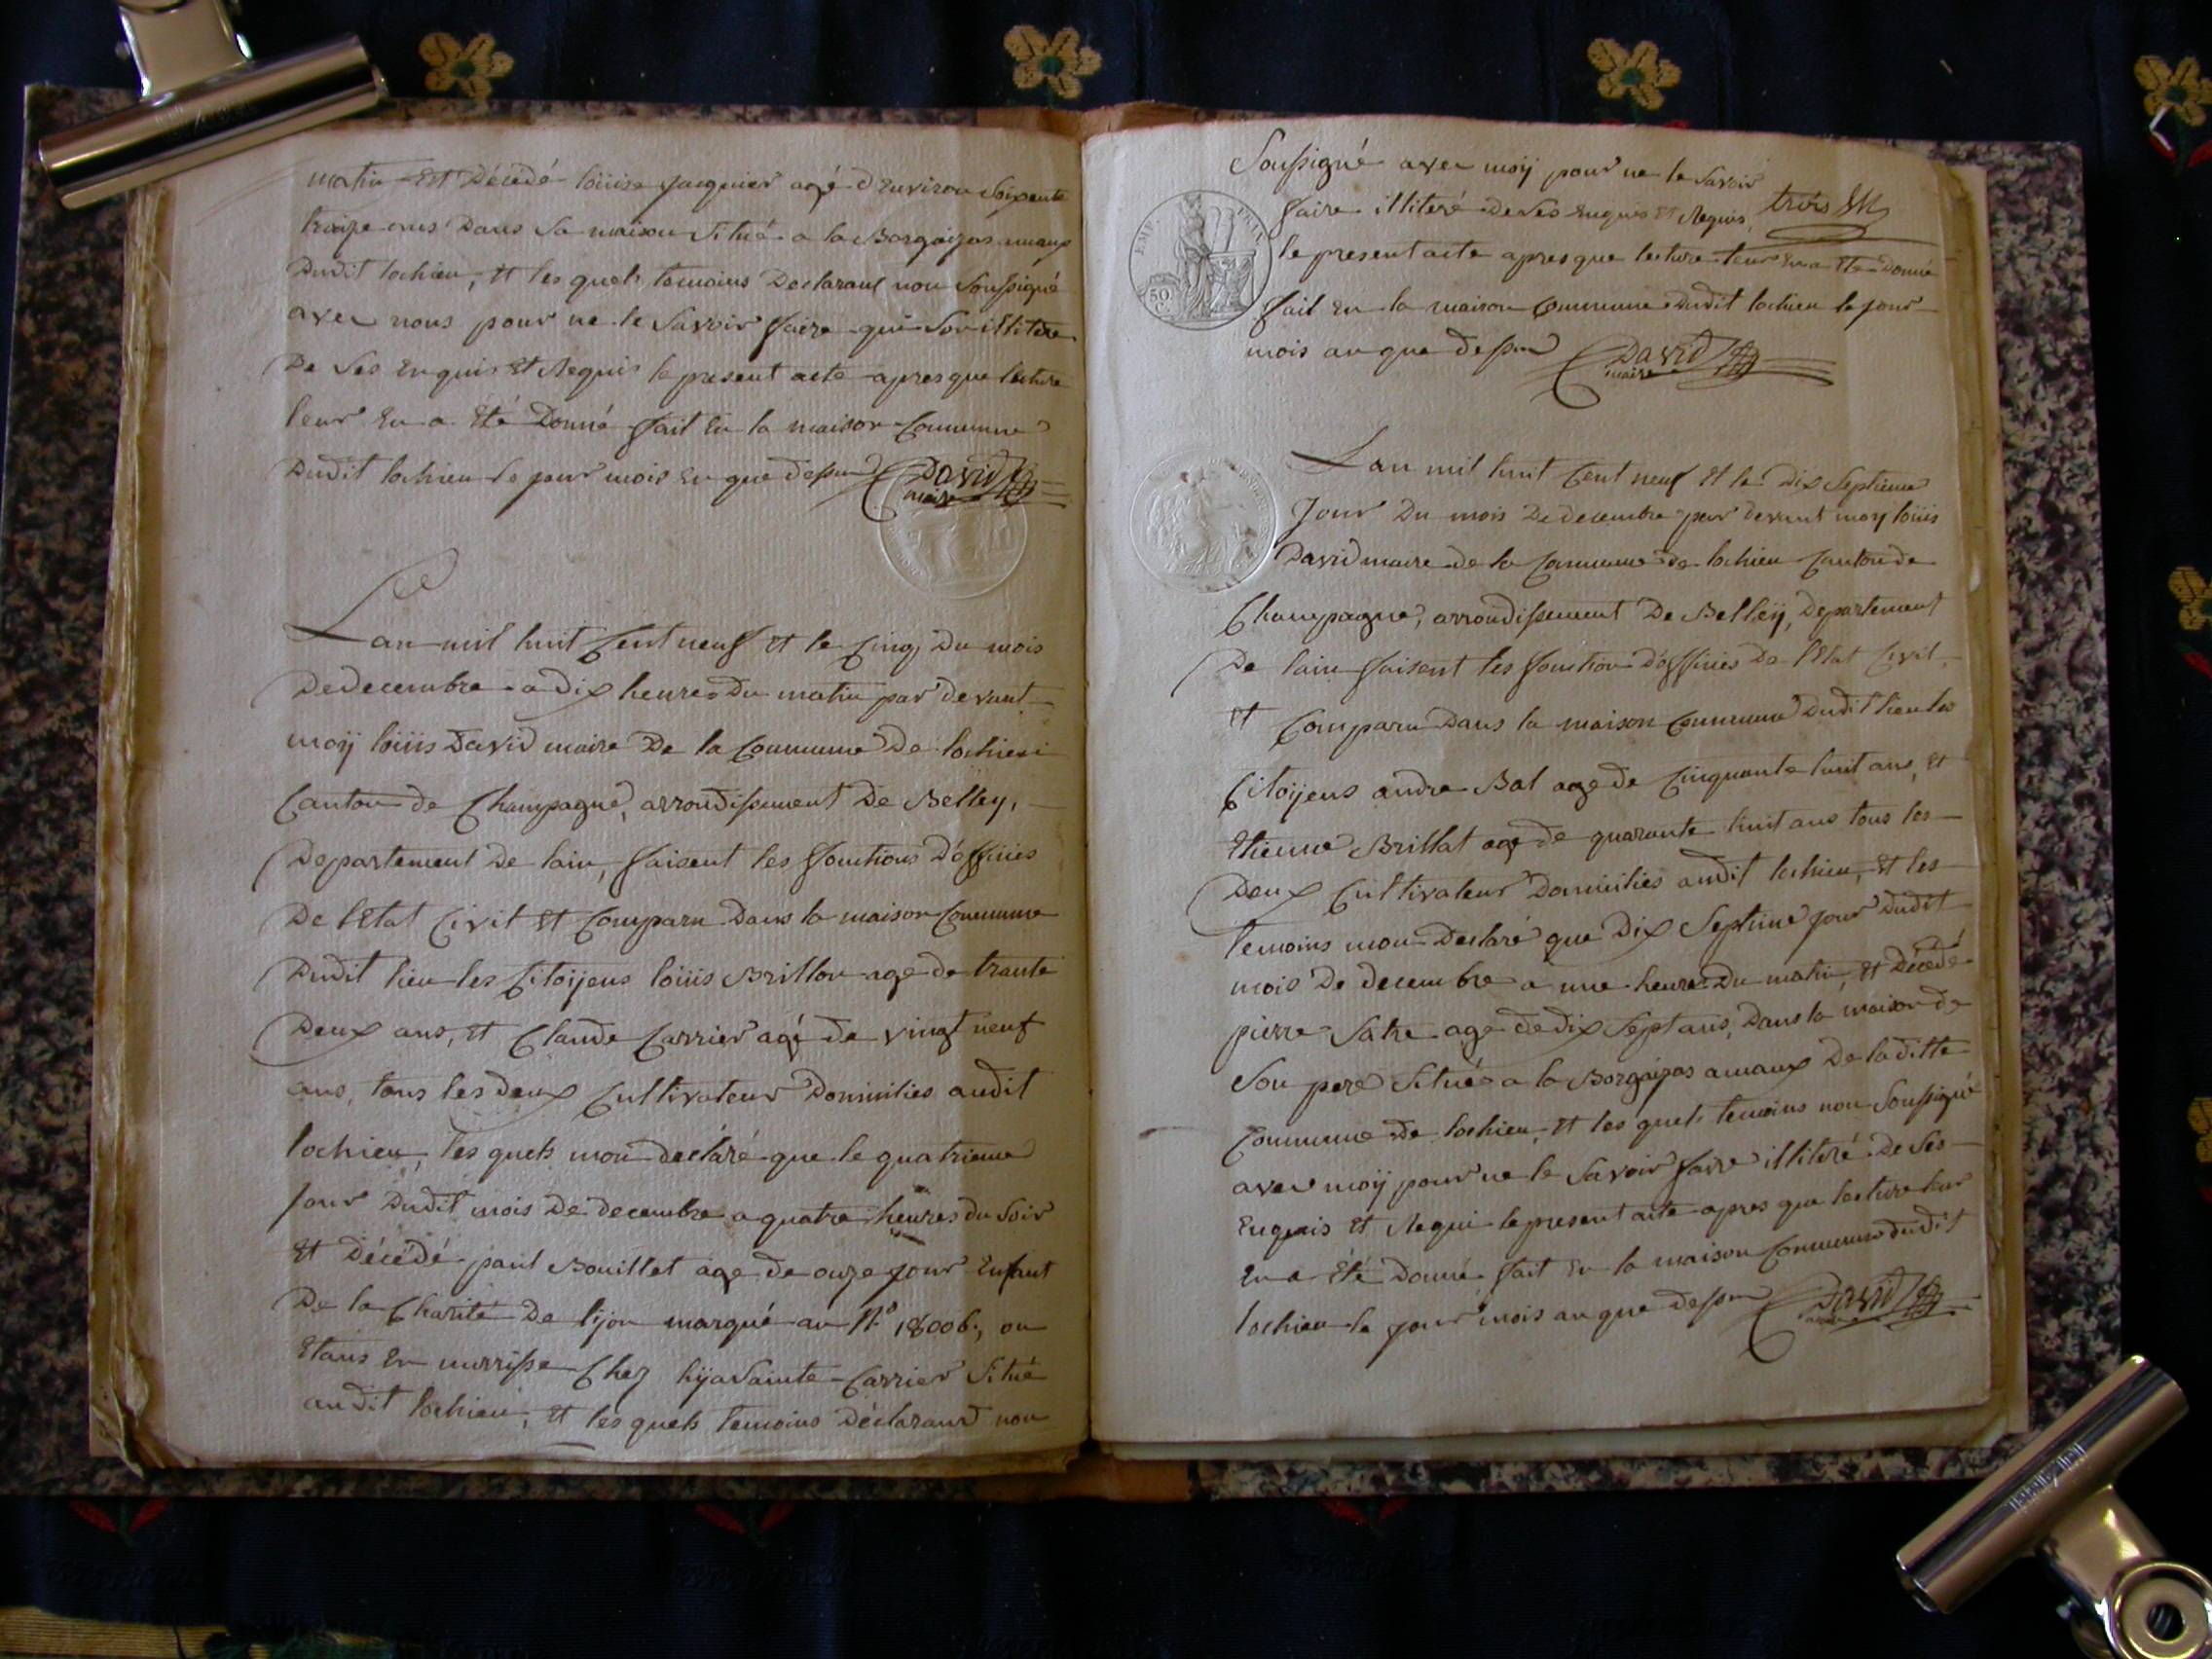 matin Est Décédé loüise jacquier agé d'Environ Soixente
traize ans Dans Sa maison Situé a la Bargaizas
Dudit lochieu, Et les quels temoins Declarans non Soussigné
avec nous pour ne le Savoir faire qui Son illitere
De Ses Enquis Et Requis le present acte apres que lecture
leur En a Eté Donné fait En la maison Commune
Dudit lochieu le jour mois En que dessus David
maire
Lan mil huit Cent neuf Et le Cinq Du mois
De decembre a dix heures Du matin par devant
moÿ loüis David maire De la Commune De lochieu
Canton de Champagne, arrondissement De Belley,
Departement De lain, faisent les fonctions D'offiies
De l'Etat Civil Et Comparu Dans la maison Commune
Dudit lieu les Citoÿens loüis Brillon age de trante
Deux ans, Et Claude Carrier agé de vingt neuf
ans, tous les deux Cultivateur Domiilies audit
lochieu, les quels mon declaré que le quatrieme
Jour Dudit mois De decembre a quatre heures du Soir
Et Décédé paul Bouillet age de onze jour Enfant
De la Charité De lijon marqué au No 18006, ou
Etans En nurrisse Chez Carrier Situé
audit lochieu, Et les quels temoins Déclarans non
Soussigné avec moÿ pour ne le Savoir
faire illiteré de Ses Enquis Et Requis, trois
le present acte apres que lecture leur En a Ete Donné
fait En la maison Commune Dudit lochieu le jour
mois an que dessus David
maire
EMP. FRAN
50 C.
Lan mil huit Cent neuf Et le Dix Septieme
Jour Du mois De decembre par devant moy loüis
David maire de la Commune de lochieu Canton de
Champagne, arrondissement De Belleÿ, Departement
De lain faisent les fonction d'offiies De l'Etat Civil,
Et Comparu Dans la maison Commune Dudit lieu les
Citoÿens andre Bal age de Cinquante huit ans, Et
Etienne Brillat age de quarante huit ans tous les
Deux Cultivateur Domiilies audit lochieu, Et les
temoins mon Declaré que Dix Septime jour Dudit
mois De decembre a une heure Du matin, Et Décédé
pierre Satre age de dix Sept ans, Dans la maison de
Son pere Situé a la Borgaizas amaux De laditte
Commune de lochieu, Et les quels temoins non Soussigné
avec moÿ pour ne le Savoir faire illiteré De Ses
Enquis Et Requi le present acte apres que lecture leur
En a Eté Donné fait En la maison Commune dudit
lochieu le jour mois an que dessus David